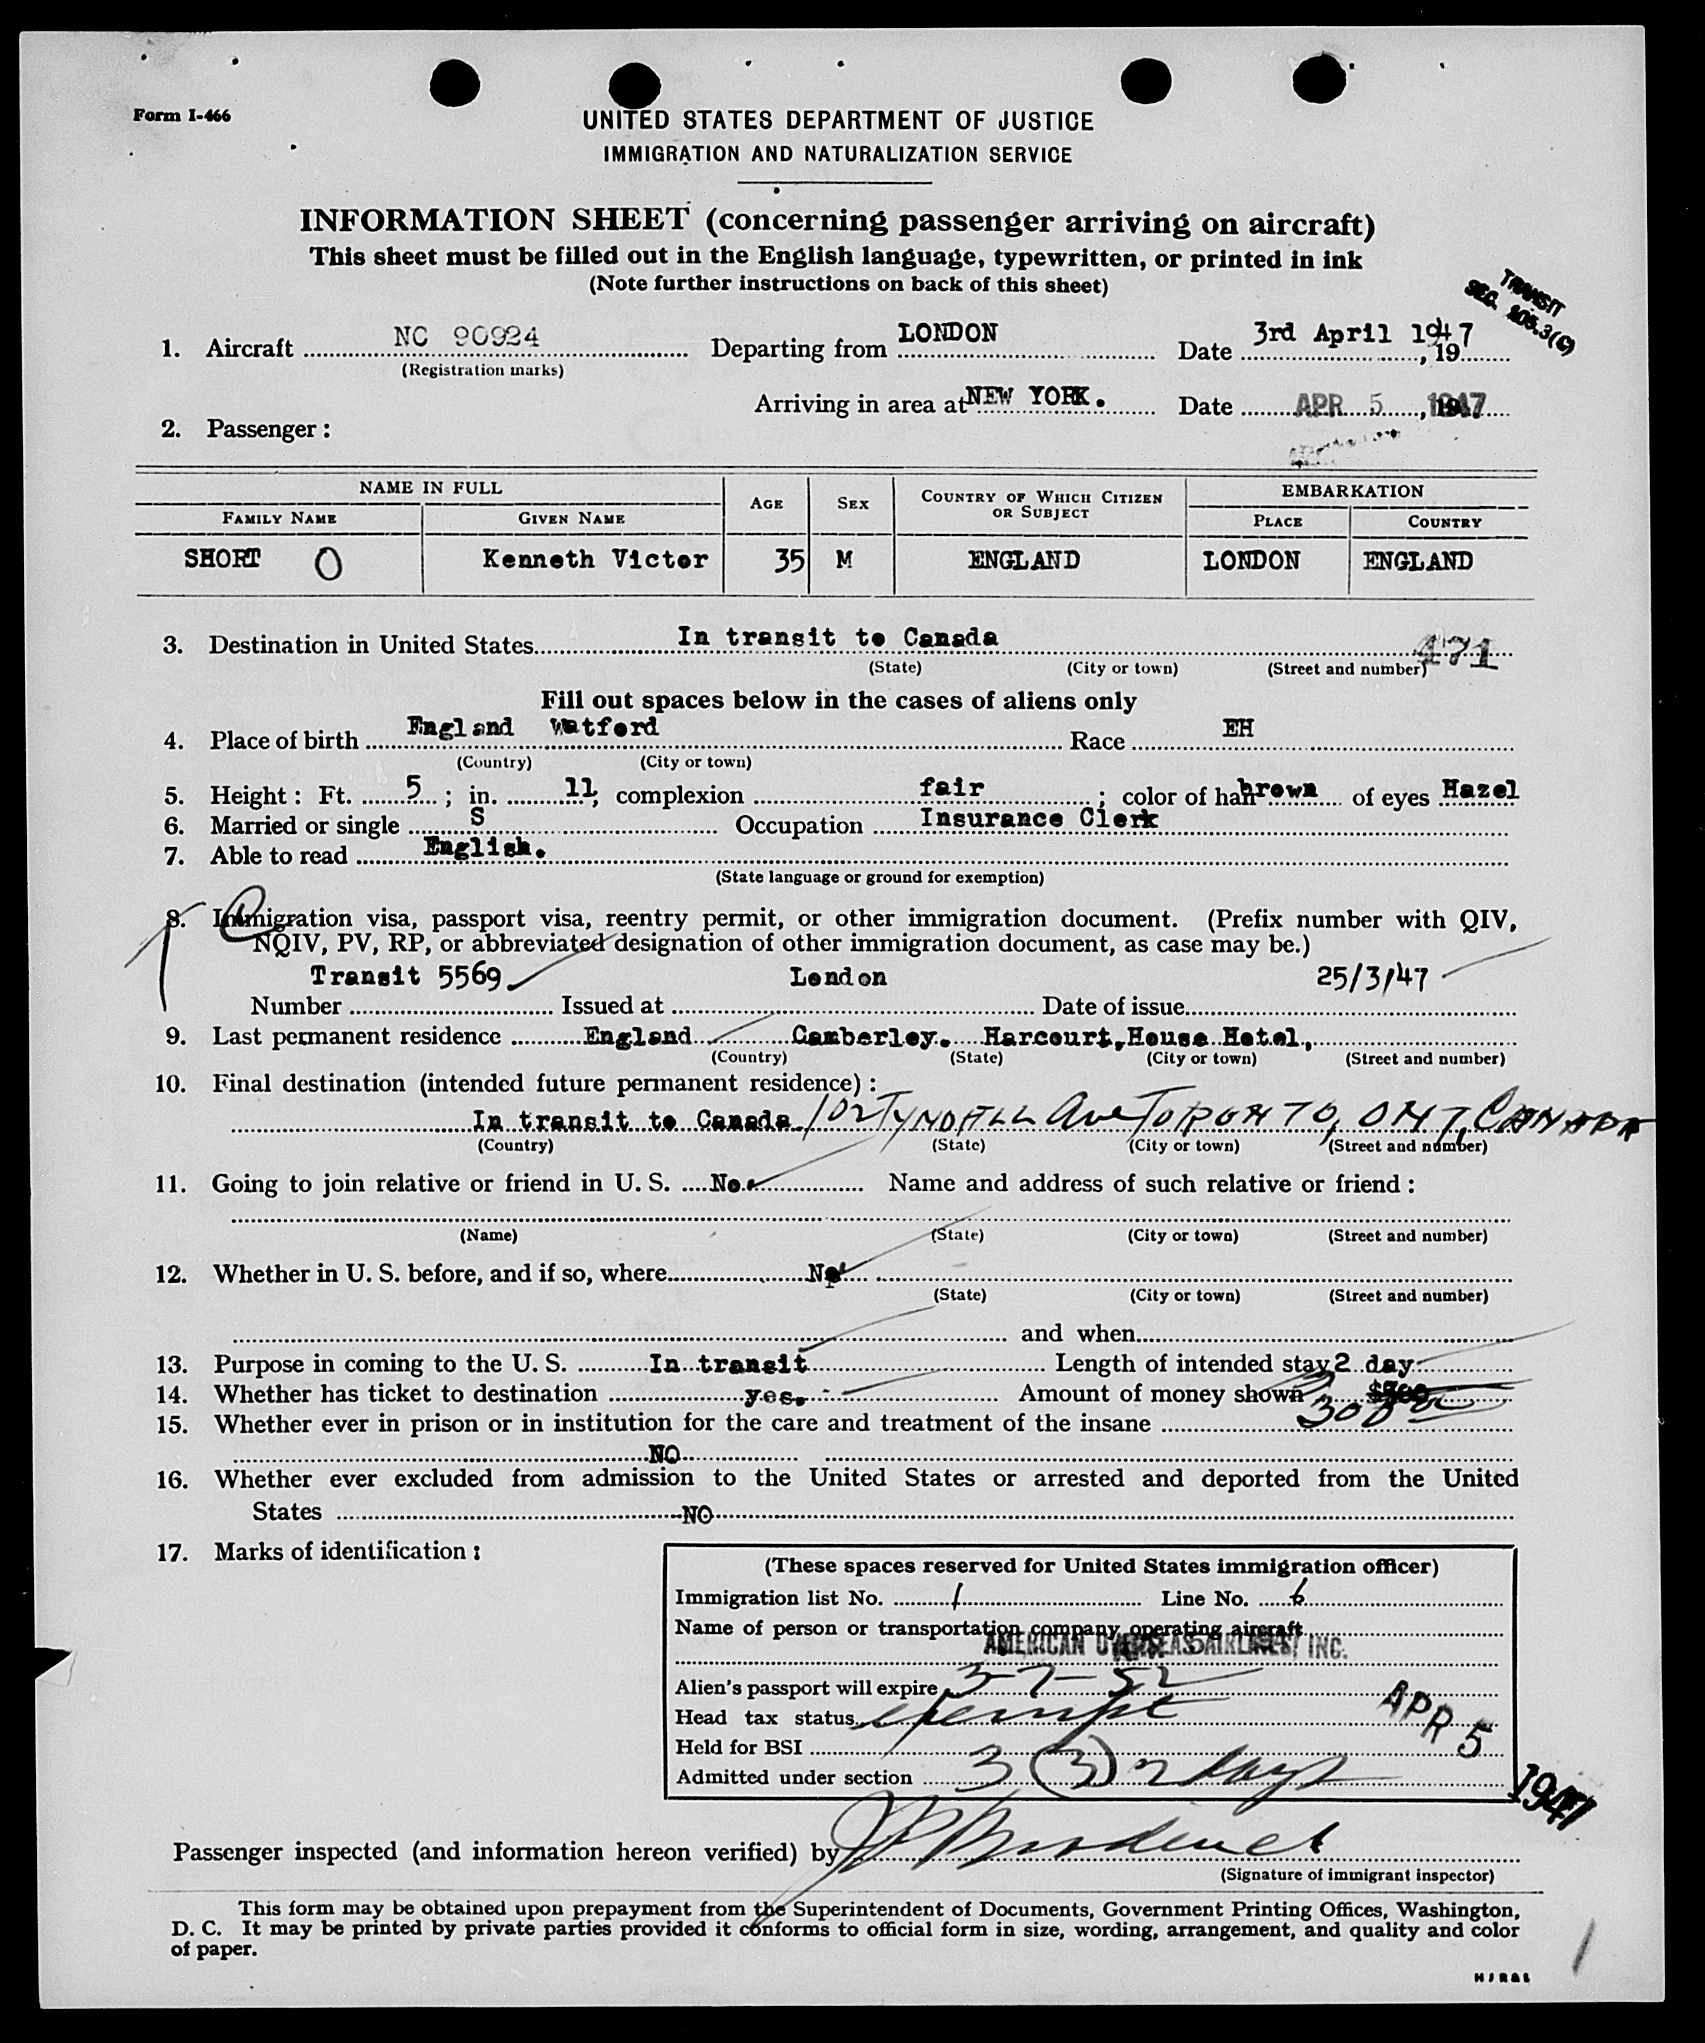 Form I-466
UNITED STATES DEPARTMENT OF JUSTICE
IMMIGRATION AND NATURALIZATION SERVICE
INFORMATION SHEET (concerning passenger arriving on aircraft)
This sheet must be filled out in the English language, typewritten, or printed in ink
(Note further instructions on back of this sheet)
TRANSIT
SEC. 105.3(C)
1. Aircraft NC 90924 Departing from LONDON Date 3rd April 1947, 19
(Registration marks)
Arriving in area at NEW YORK. Date APR 5, 1947
2. Passenger:
NAME IN FULL AGE SEX COUNTRY OF WHICH CITIZEN OR SUBJECT EMBARKATION
FAMILY NAME GIVEN NAME PLACE COUNTRY
SHORT O Kenneth Victor 35 M ENGLAND LONDON ENGLAND
3. Destination in United States In transit to Canada 471
(State) (City or town) (Street and number)
Fill out spaces below in the cases of aliens only
4. Place of birth England Watford Race EH
(Country) (City or town)
5. Height: Ft. 5; in. 11; complexion fair; color of hair brown of eyes Hazel
6. Married or single S Occupation Insurance Clerk
7. Able to read English.
(State language or ground for exemption)
8. Immigration visa, passport visa, reentry permit, or other immigration document. (Prefix number with QIV,
NQIV, PV, RP, or abbreviated designation of other immigration document, as case may be.)
Transit 5569 London 25/3/47
Number Issued at Date of issue
9. Last permanent residence England Camberley. Harcourt, House Hotel,
(Country) (State) (City or town) (Street and number)
10. Final destination (intended future permanent residence):
In transit to Canada 102 TYNDALL Ave TORONTO, ONT, CANADA
(Country) (State) (City or town) (Street and number)
11. Going to join relative or friend in U. S. No. Name and address of such relative or friend:
(Name) (State) (City or town) (Street and number)
12. Whether in U. S. before, and if so, where No
(State) (City or town) (Street and number)
and when
13. Purpose in coming to the U. S. In transit Length of intended stay 2 day
14. Whether has ticket to destination yes. Amount of money shown $300
300
15. Whether ever in prison or in institution for the care and treatment of the insane
NO
16. Whether ever excluded from admission to the United States or arrested and deported from the United
States NO
17. Marks of identification:
(These spaces reserved for United States immigration officer)
Immigration list No. 1 Line No. 6
Name of person or transportation company operating aircraft
AMERICAN OVERSEAS AIRLINES, INC.
Alien's passport will expire 3-7-52
Head tax status exempt
Held for BSI
Admitted under section 3 (3) 2 days
APR 5 1947
Passenger inspected (and information hereon verified) by
(Signature of immigrant inspector)
This form may be obtained upon prepayment from the Superintendent of Documents, Government Printing Offices, Washington,
D. C. It may be printed by private parties provided it conforms to official form in size, wording, arrangement, and quality and color
of paper.
1